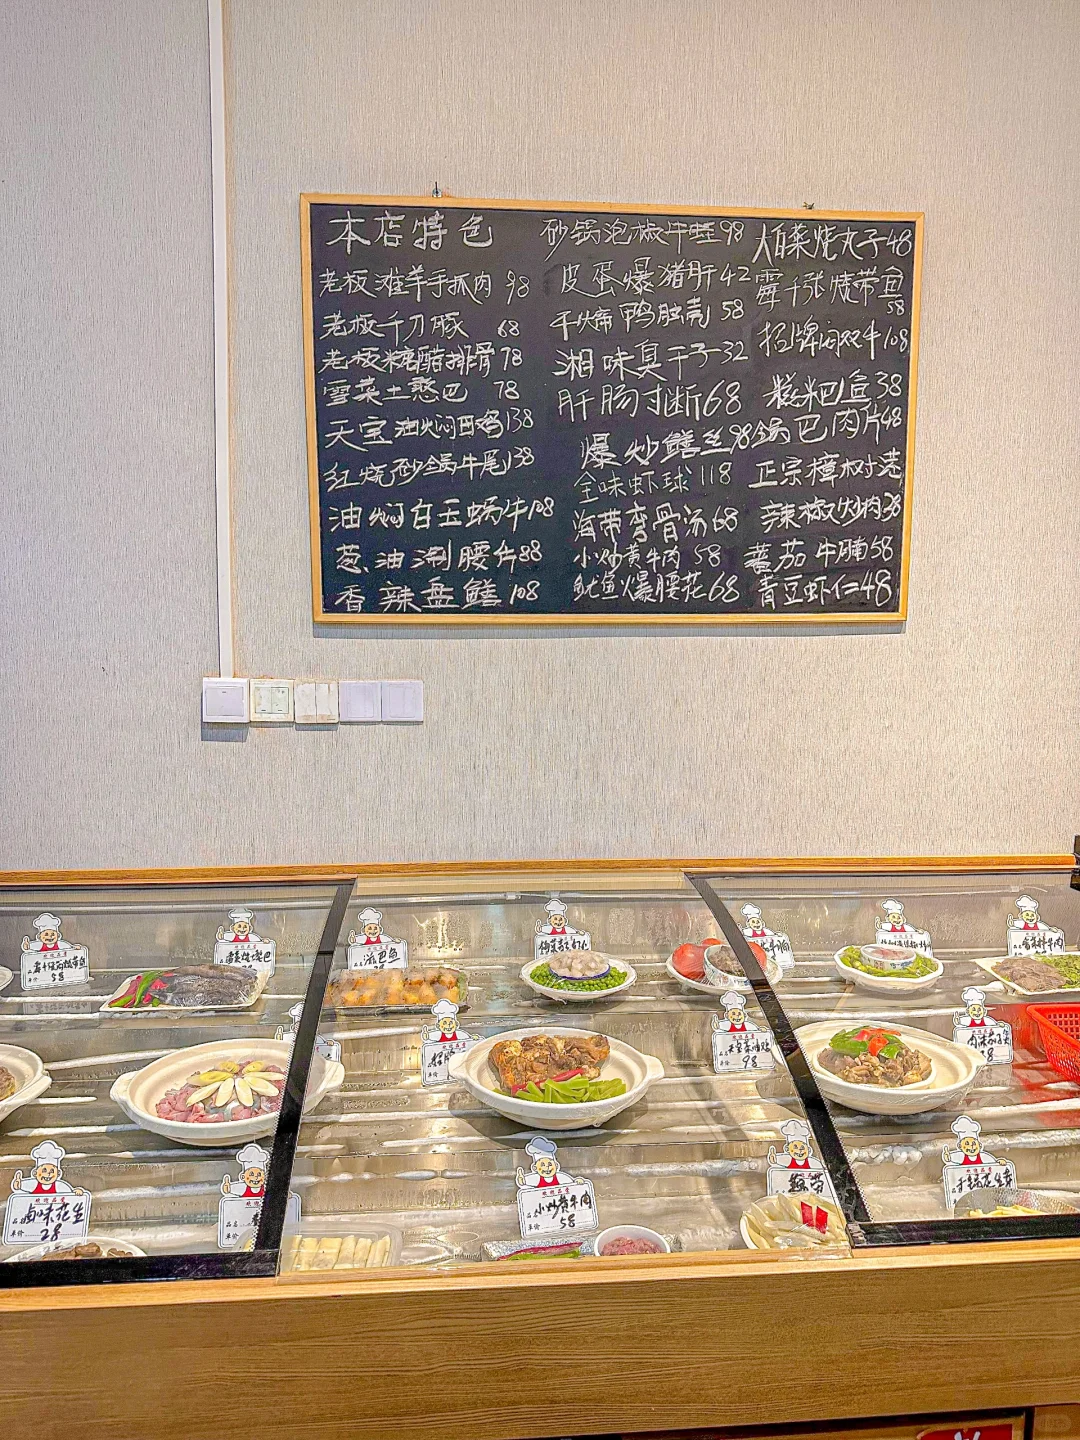 本店特色
老板滩羊手抓肉 98
老板千刀豚 68
老板糖醋排骨 78
雪菜土憨巴 78
天宝油焖田鸡 138
红烧砂锅牛尾 138
油焖白玉蜗牛 108
葱油涮腰片 88
香辣盘鳝 108
砂锅泡椒牛蛙 98
皮蛋爆猪肝 42
干煸鸭肫壳 58
湘味臭干子 32
肝肠寸断 68
爆炒鳝丝 98
全味虾球 118
海带弯骨汤 68
小炒黄牛肉 58
鱿鱼爆腰花 68
大白菜烧丸子 48
霉千张烧带鱼
58
招牌焖双牛 108
糍粑鱼 38
锅巴肉片 48
正宗樟树港
辣椒炒肉 38
蕃茄牛腩 58
青豆虾仁 48
58
天宝
98
卤味花生
28
小炒黄牛肉
58